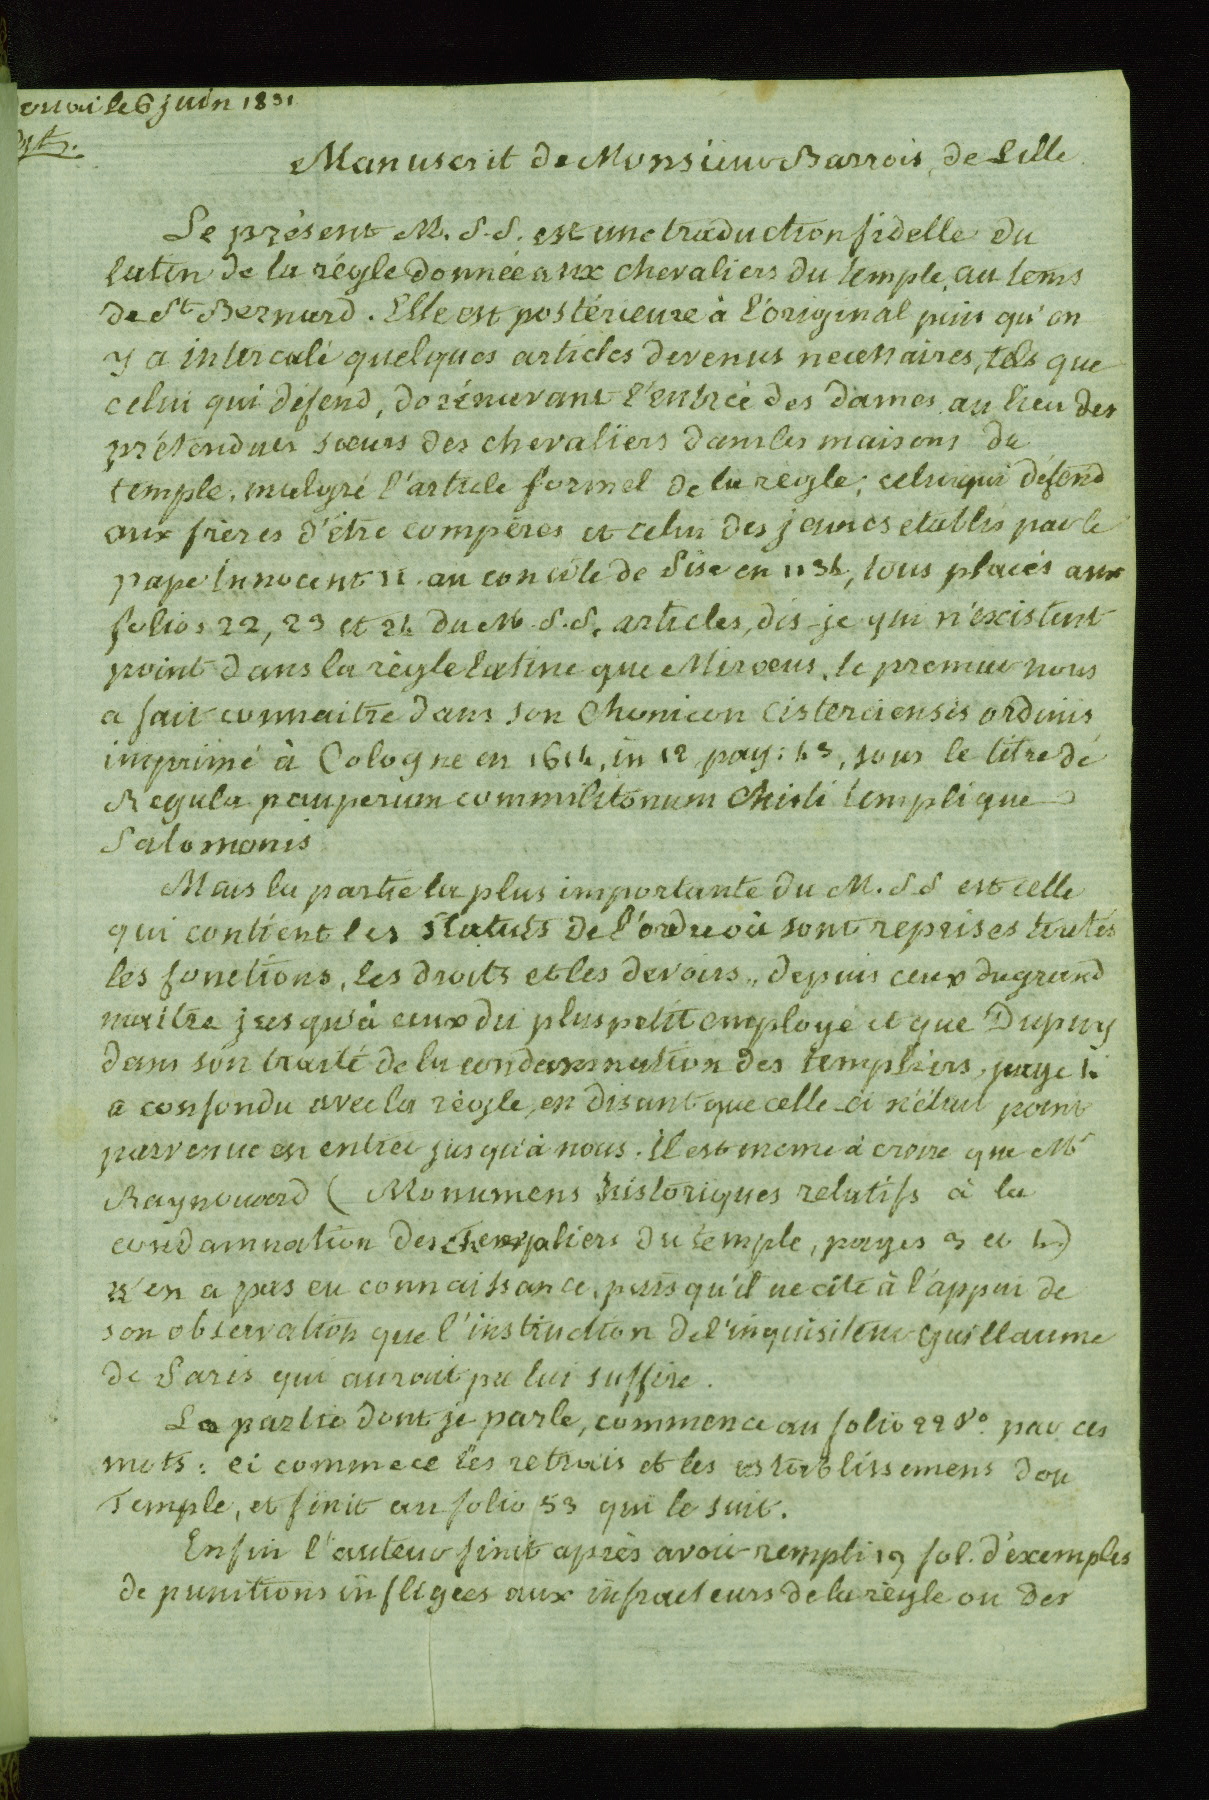 ouai le 6 juin 1831
Manuscrit de Monsieur Barrois, de Lille.
Le présent M.S.S. est une traduction fidelle du
latin de la régle donnée aux chevaliers du temple, au tems
de St Bernard. Elle est postérieure à l'original puis qu'on
y a intercalé quelques articles devenus necessaires, tels que
celui qui défend, dorénavant l'entrée des dames au lieu des
prétendues sœurs des chevaliers dans les maisons du
temple, malgré l'article formel de la regle; celui qui défend
aux frères d'être compères et celui des jeunes etablis par le
pape Innocent II. au concile de Pise en 1134, tous placés aux
folios 22, 23 et 24 du M.S.S. articles, dis-je qui n'existent
point dans la règle latine que Miroeus, le premier nous
a fait connaitre dans son Chonicon Cisterciensis ordinis
imprimé à Cologne en 1614, in 12, pag: 43, sous le titre de
Regula pauperum commilitonum Christi templique
Salomonis
Mais la partie la plus importante du M.S.S est celle
qui contient les statuts de l'ordre où sont reprises toutes
les fonctions, les droits et les devoirs, depuis ceux du grand
maitre jusqu'à ceux du plus petit employé et que Dupuy
dans son traité de la condamnation des templiers, page 4
a confondu avec la règle, en disant que celle-ci n'était point
parvenue en entier jusqu'à nous. Il est meme à croire que Mr
Raynouard (Monumens historiques relatifs à la
condamnation des chevaliers du temple, pages 3 et 4)
n'en a pas eu connaissance, puis qu'il ne cite à l'appui de
son observation que l'instruction de l'inquisiteur Guillaume
de Paris qui auroit pu lui suffire.
La partie dont je parle, commence au folio 22 Vo. par ces
mots: ci commece les retrais et les establissemens dou
Temple, et finit au folio 53 qui le suit.
Enfin l'auteur finit après avoir rempli 19 fol. d'exemples
de punitions infligées aux infracteurs de la règle ou des